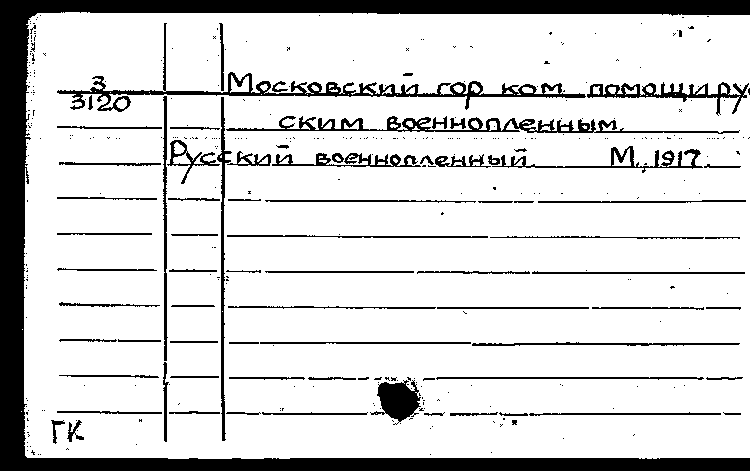 З
3120
Московский гор ком помощи рус
ским военнопленным.
Русский военнопленный. М., 1917.
ГК